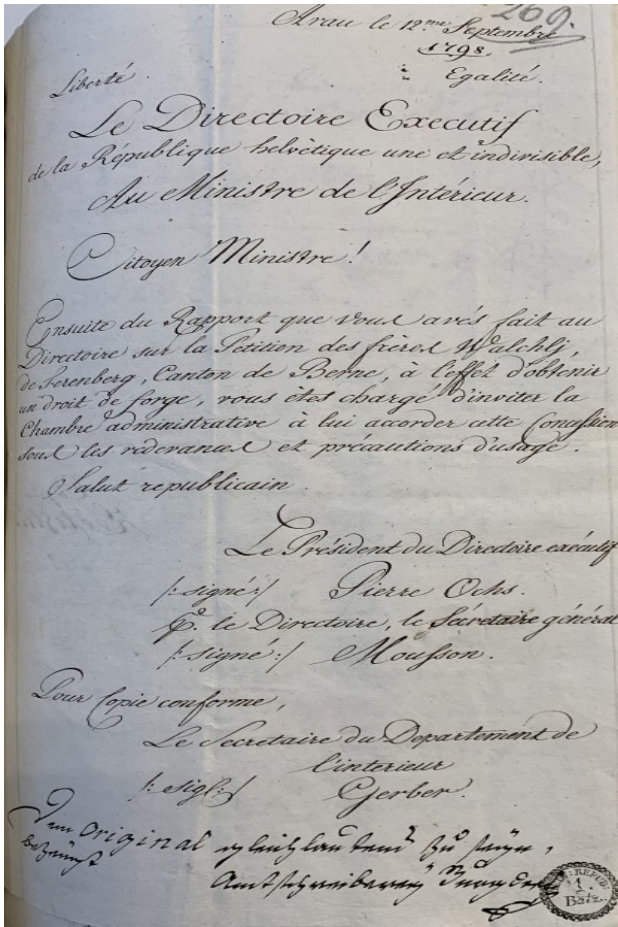 269.
Arau le 12.me Septembre
1798.
Liberté.
Egalité.
Le Directoire Executif
de la République helvètique une et indivisible,
Au Ministre de l'Intérieur.
Citoyen Ministre!
Ensuite du Rapport que vous avés fait au
Directoire sur la Pétition des frères Walchlj,
de Serenberg, Canton de Berne, à l'effet d'obtenir
un droit de forge, vous êtes chargé d'inviter la
Chambre administrative à lui accorder cette Concession
sous les redevances et précautions d'usage.
Salut republicain
Le Président du Directoire exécutif
/: signé :/ Pierre Ochs.
P.r le Directoire, le Sécretaire général
/: signé :/ Mousson.
Pour Copie conforme,
Le Secretaire du Departement de
l'interieur
/: sigl: :/ Gerber.
Dem Original gleichlautend zu seyn,
bezeugt
Amtschreiberey
1.
Batz.